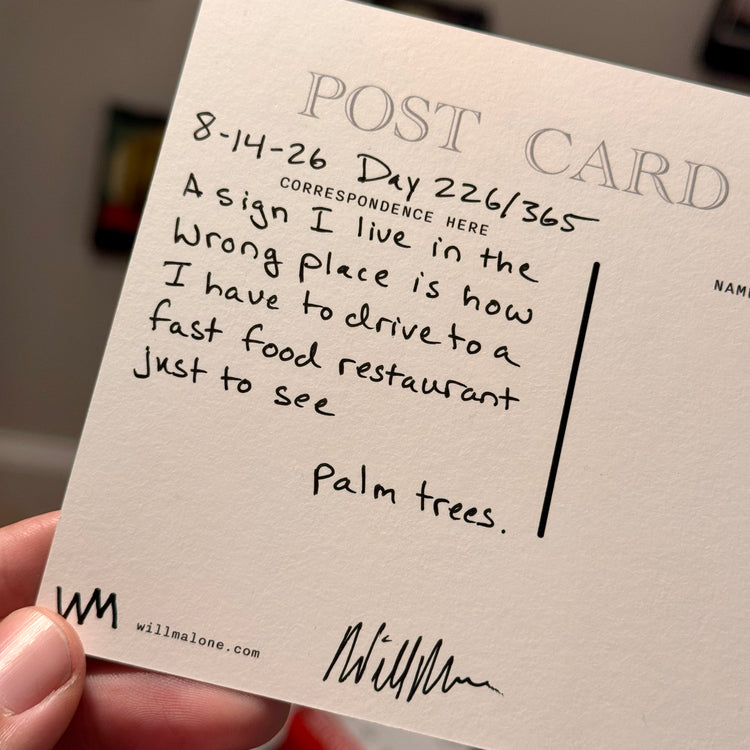 POST CARD
8-14-26 Day 226/365
CORRESPONDENCE HERE
A sign I live in the
Wrong place is how
I have to drive to a
fast food restaurant
just to see
palm trees.
WM willmalone.com